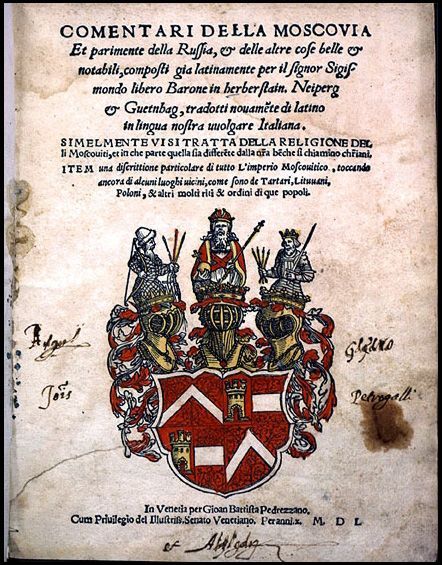 COMENTARI DELLA MOSCOVIA
Et parimente della Russia, & delle altre cose belle &
notabili, composti gia latinamente per il signor Sigis
mondo libero Barone in herberstain, Neiperg
& Guetnhag, tradotti nouamẽte di latino
in lingua nostra uuolgare Italiana.
SIMELMENTE VI SI TRATTA DELLA RELIGIONE DEL
li Moscouiti, et in che parte quella sia differẽte dalla nr̃a bẽche si chiamino chr̃iani.
ITEM una discrittione particolare di tutto L'imperio Moscouitico, toccando
ancora di alcuni luoghi uicini, come sono de Tartari, Lituuani,
Poloni, & altri molti riti & ordini di que popoli.
In Venetia per Gioan Battista Pedrezzano.
Cum Priuilegio del Illustriss. Senato Venetiano. Per anni. x. M. D L
et